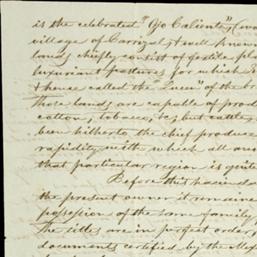 is the celebrated "Ojo Caliente",
village of Carrizal, & well known
lands chiefly consist of fertile
luxuriant pastures for which
& hence called the Queen of the
those lands are capable of
cotton, tobacco, &c, but cattle
been hitherto the chief produce
rapidity with which all
that particular region is quite
Before this hacienda
the present owner it remained
possession of the same family
The titles are in perfect order,
documents certified by the